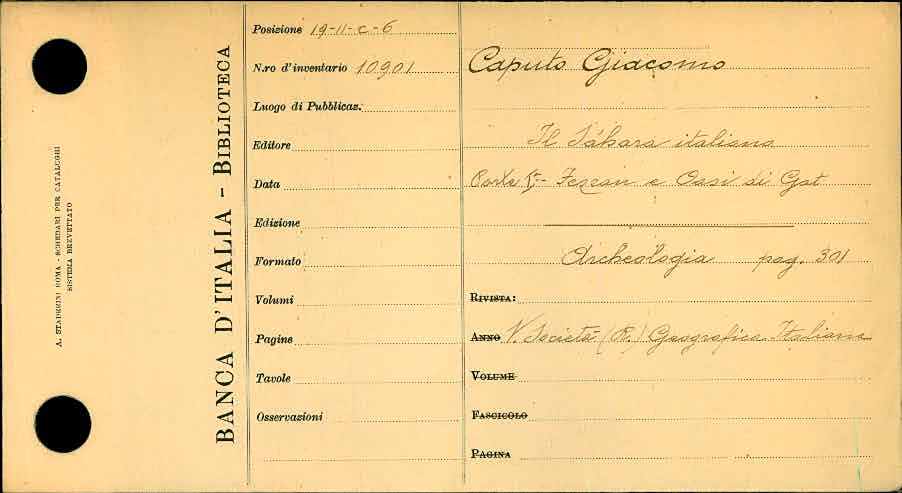 A. STADERINI ROMA - SCHEDARI PER CATALOGHI
SISTEMA BREVETTATO
BANCA D'ITALIA - BIBLIOTECA
Posizione 19-11-c-6
N.ro d'inventario 10901
Luogo di Pubblicaz.
Editore
Data
Edizione
Formato
Volumi
Pagine
Tavole
Osservazioni
Caputo Giacomo
Il Sáhara italiano
Parte I - Fezzan e Oasi di Gat
Archeologia pag. 301
RIVISTA:
ANNO V. Società (R.) Geografica Italiana
VOLUME
FASCICOLO
PAGINA